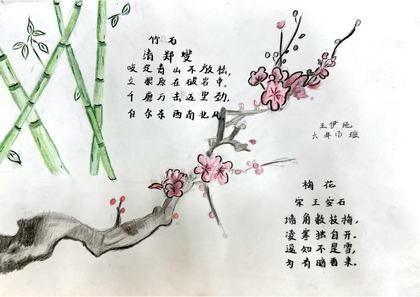 竹石
清 郑燮
咬定青山不放松，
立根原在破岩中。
千磨万击还坚劲，
任尔东西南北风。
王伊
六年 班
梅花
宋 王安石
墙角数枝梅，
凌寒独自开。
遥知不是雪，
为有暗香来。